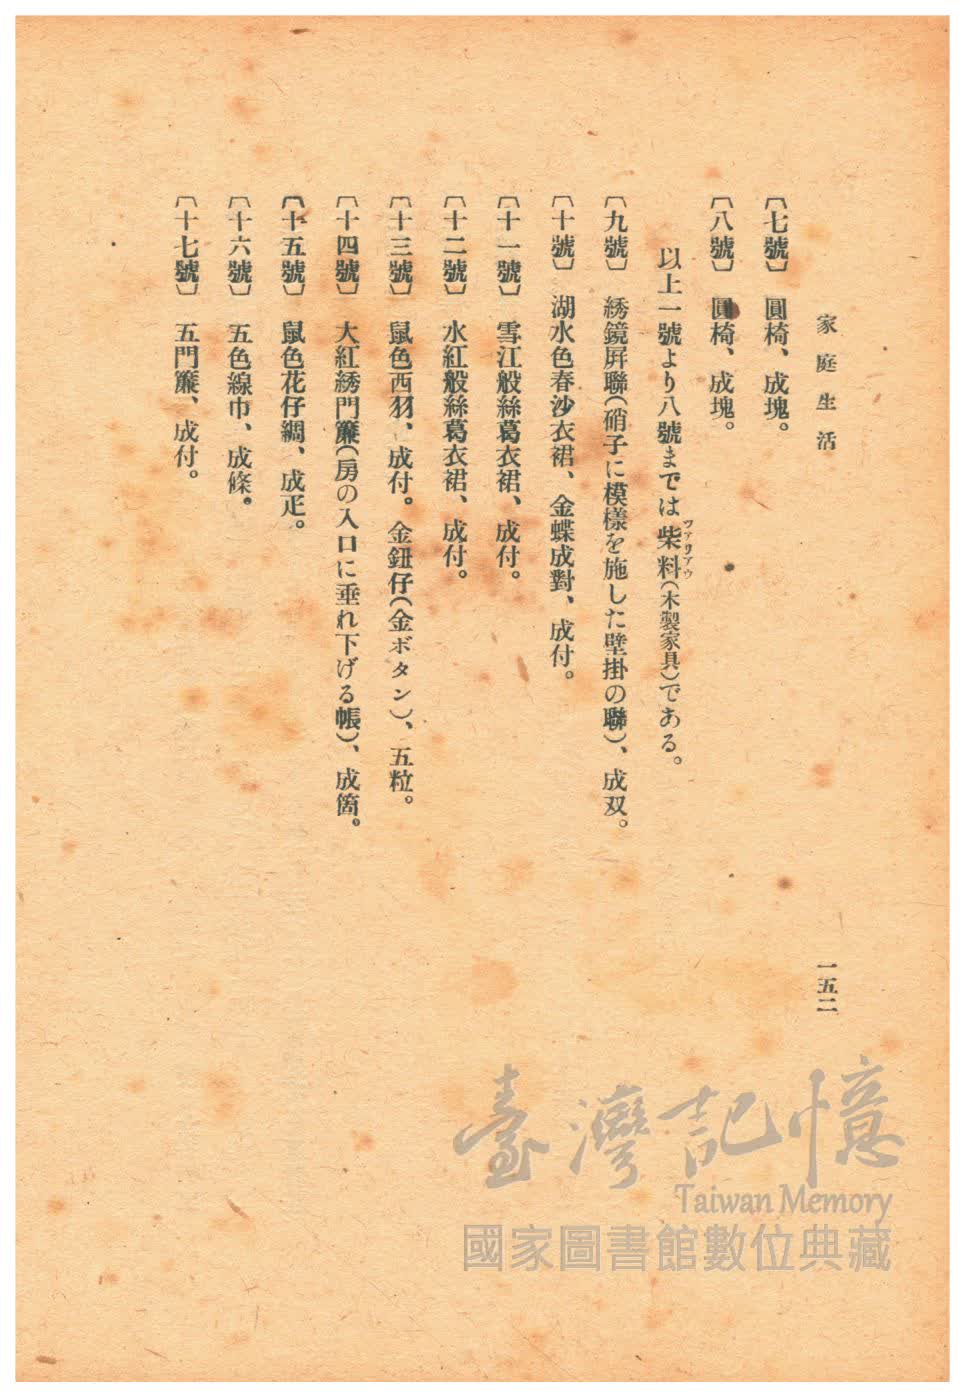 家庭生活
一五二
〔七號〕 圓椅、成塊。
〔八號〕 圓椅、成塊。
以上一號より八號までは柴料(木製家具)である。
ツアリアウ
〔九號〕 綉鏡屛聯(硝子に模樣を施した壁掛の聯)、成双。
〔十號〕 湖水色春沙衣裙、金蝶成對、成付。
〔十一號〕 雪江般絲葛衣裙、成付。
〔十二號〕 水紅般絲葛衣裙、成付。
〔十三號〕 鼠色西羽、成付。金鈕仔(金ボタン)、五粒。
〔十四號〕 大紅綉門簾(房の入口に垂れ下げる帳)、成箇。
〔十五號〕 鼠色花仔綢、成疋。
〔十六號〕 五色線巾、成條。
〔十七號〕 五門簾、成付。
臺灣記憶
Taiwan Memory
國家圖書館數位典藏